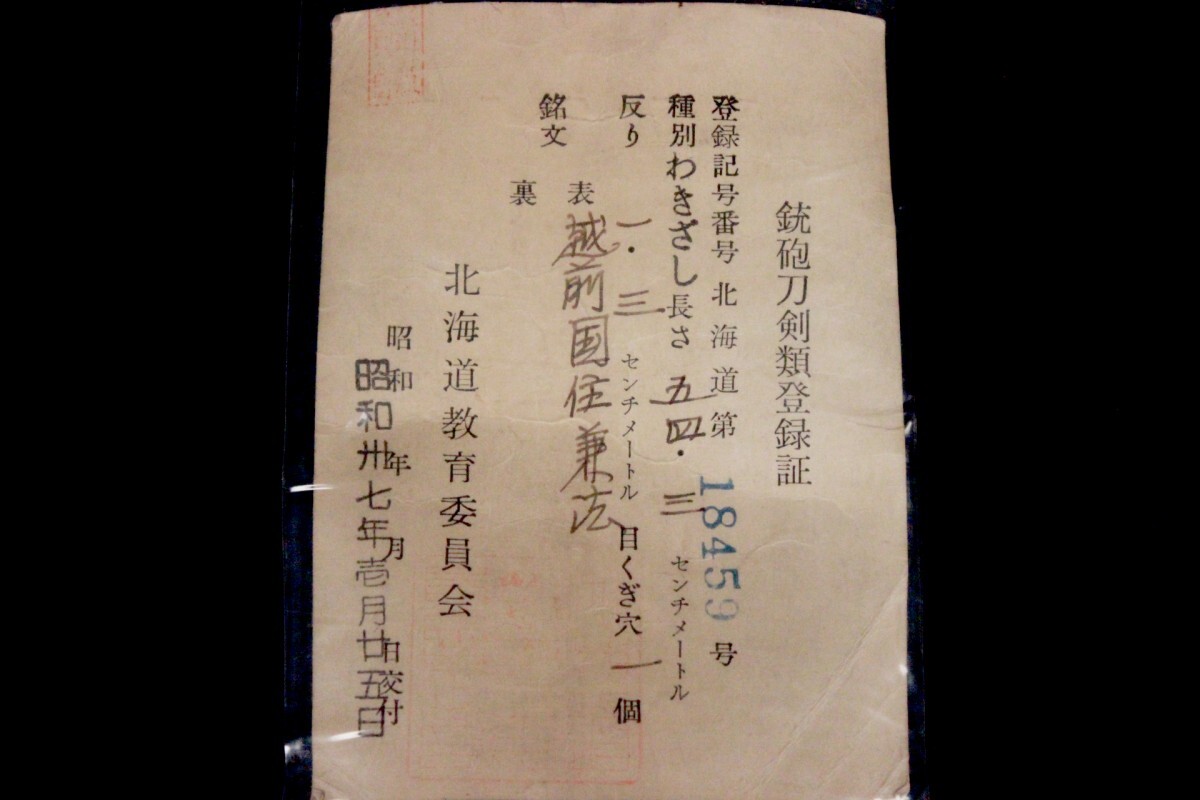 銃砲刀剣類登録証
登録記号番号 北海道第 18459 号
種別 わきざし 長さ 五四・三 センチメートル
反り 一・三 センチメートル 目くぎ穴 一 個
銘文
表 越前国住兼法
裏
北海道教育委員会
昭和 年 月 日交付
昭和卅七年壱月廿五日